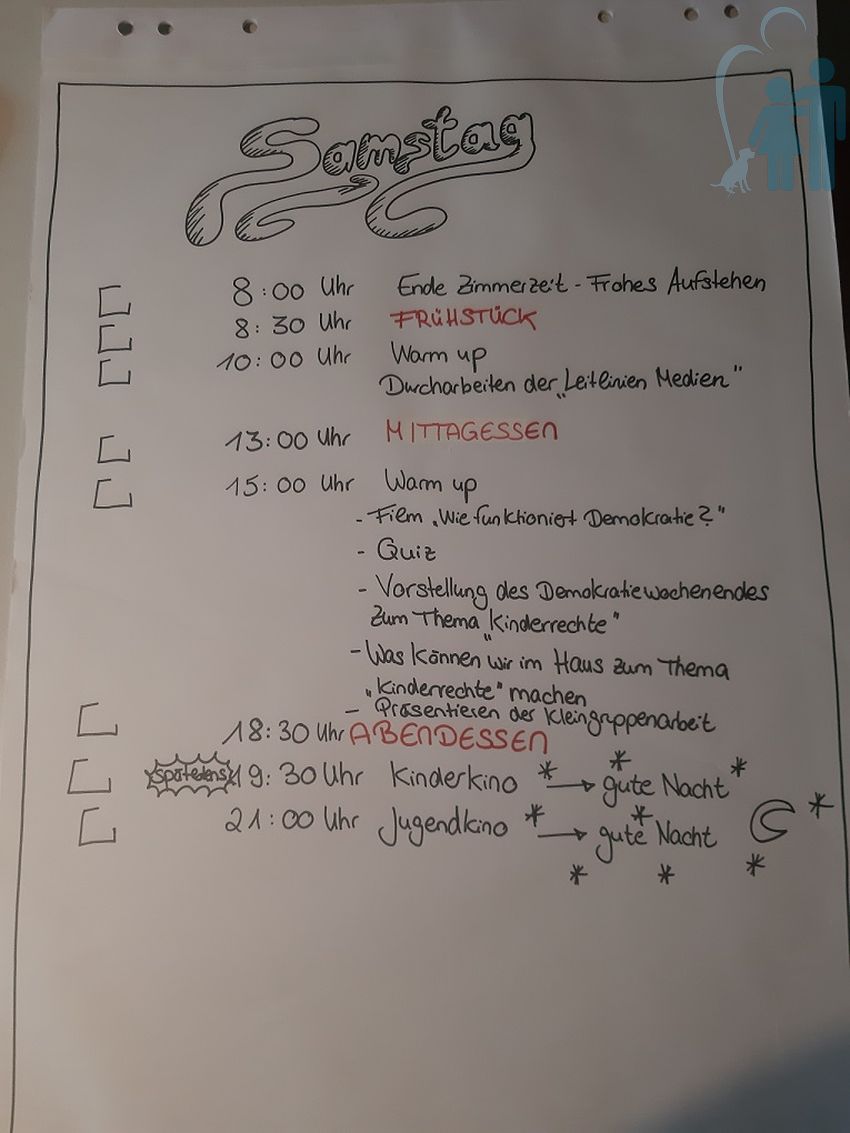 Samstag
8:00 Uhr Ende Zimmerzeit - Frohes Aufstehen
8:30 Uhr FRÜHSTÜCK
10:00 Uhr Warm up
Durcharbeiten der „Leitlinien Medien"
13:00 Uhr MITTAGESSEN
15:00 Uhr Warm up
- Film „Wie funktioniert Demokratie?"
- Quiz
- Vorstellung des Demokratiewochenendes
zum Thema „Kinderrechte"
- Was können wir im Haus zum Thema
„Kinderrechte" machen
- Präsentieren der Kleingruppenarbeit
18:30 Uhr ABENDESSEN
spätestens 19:30 Uhr Kinderkino → gute Nacht
21:00 Uhr Jugendkino → gute Nacht